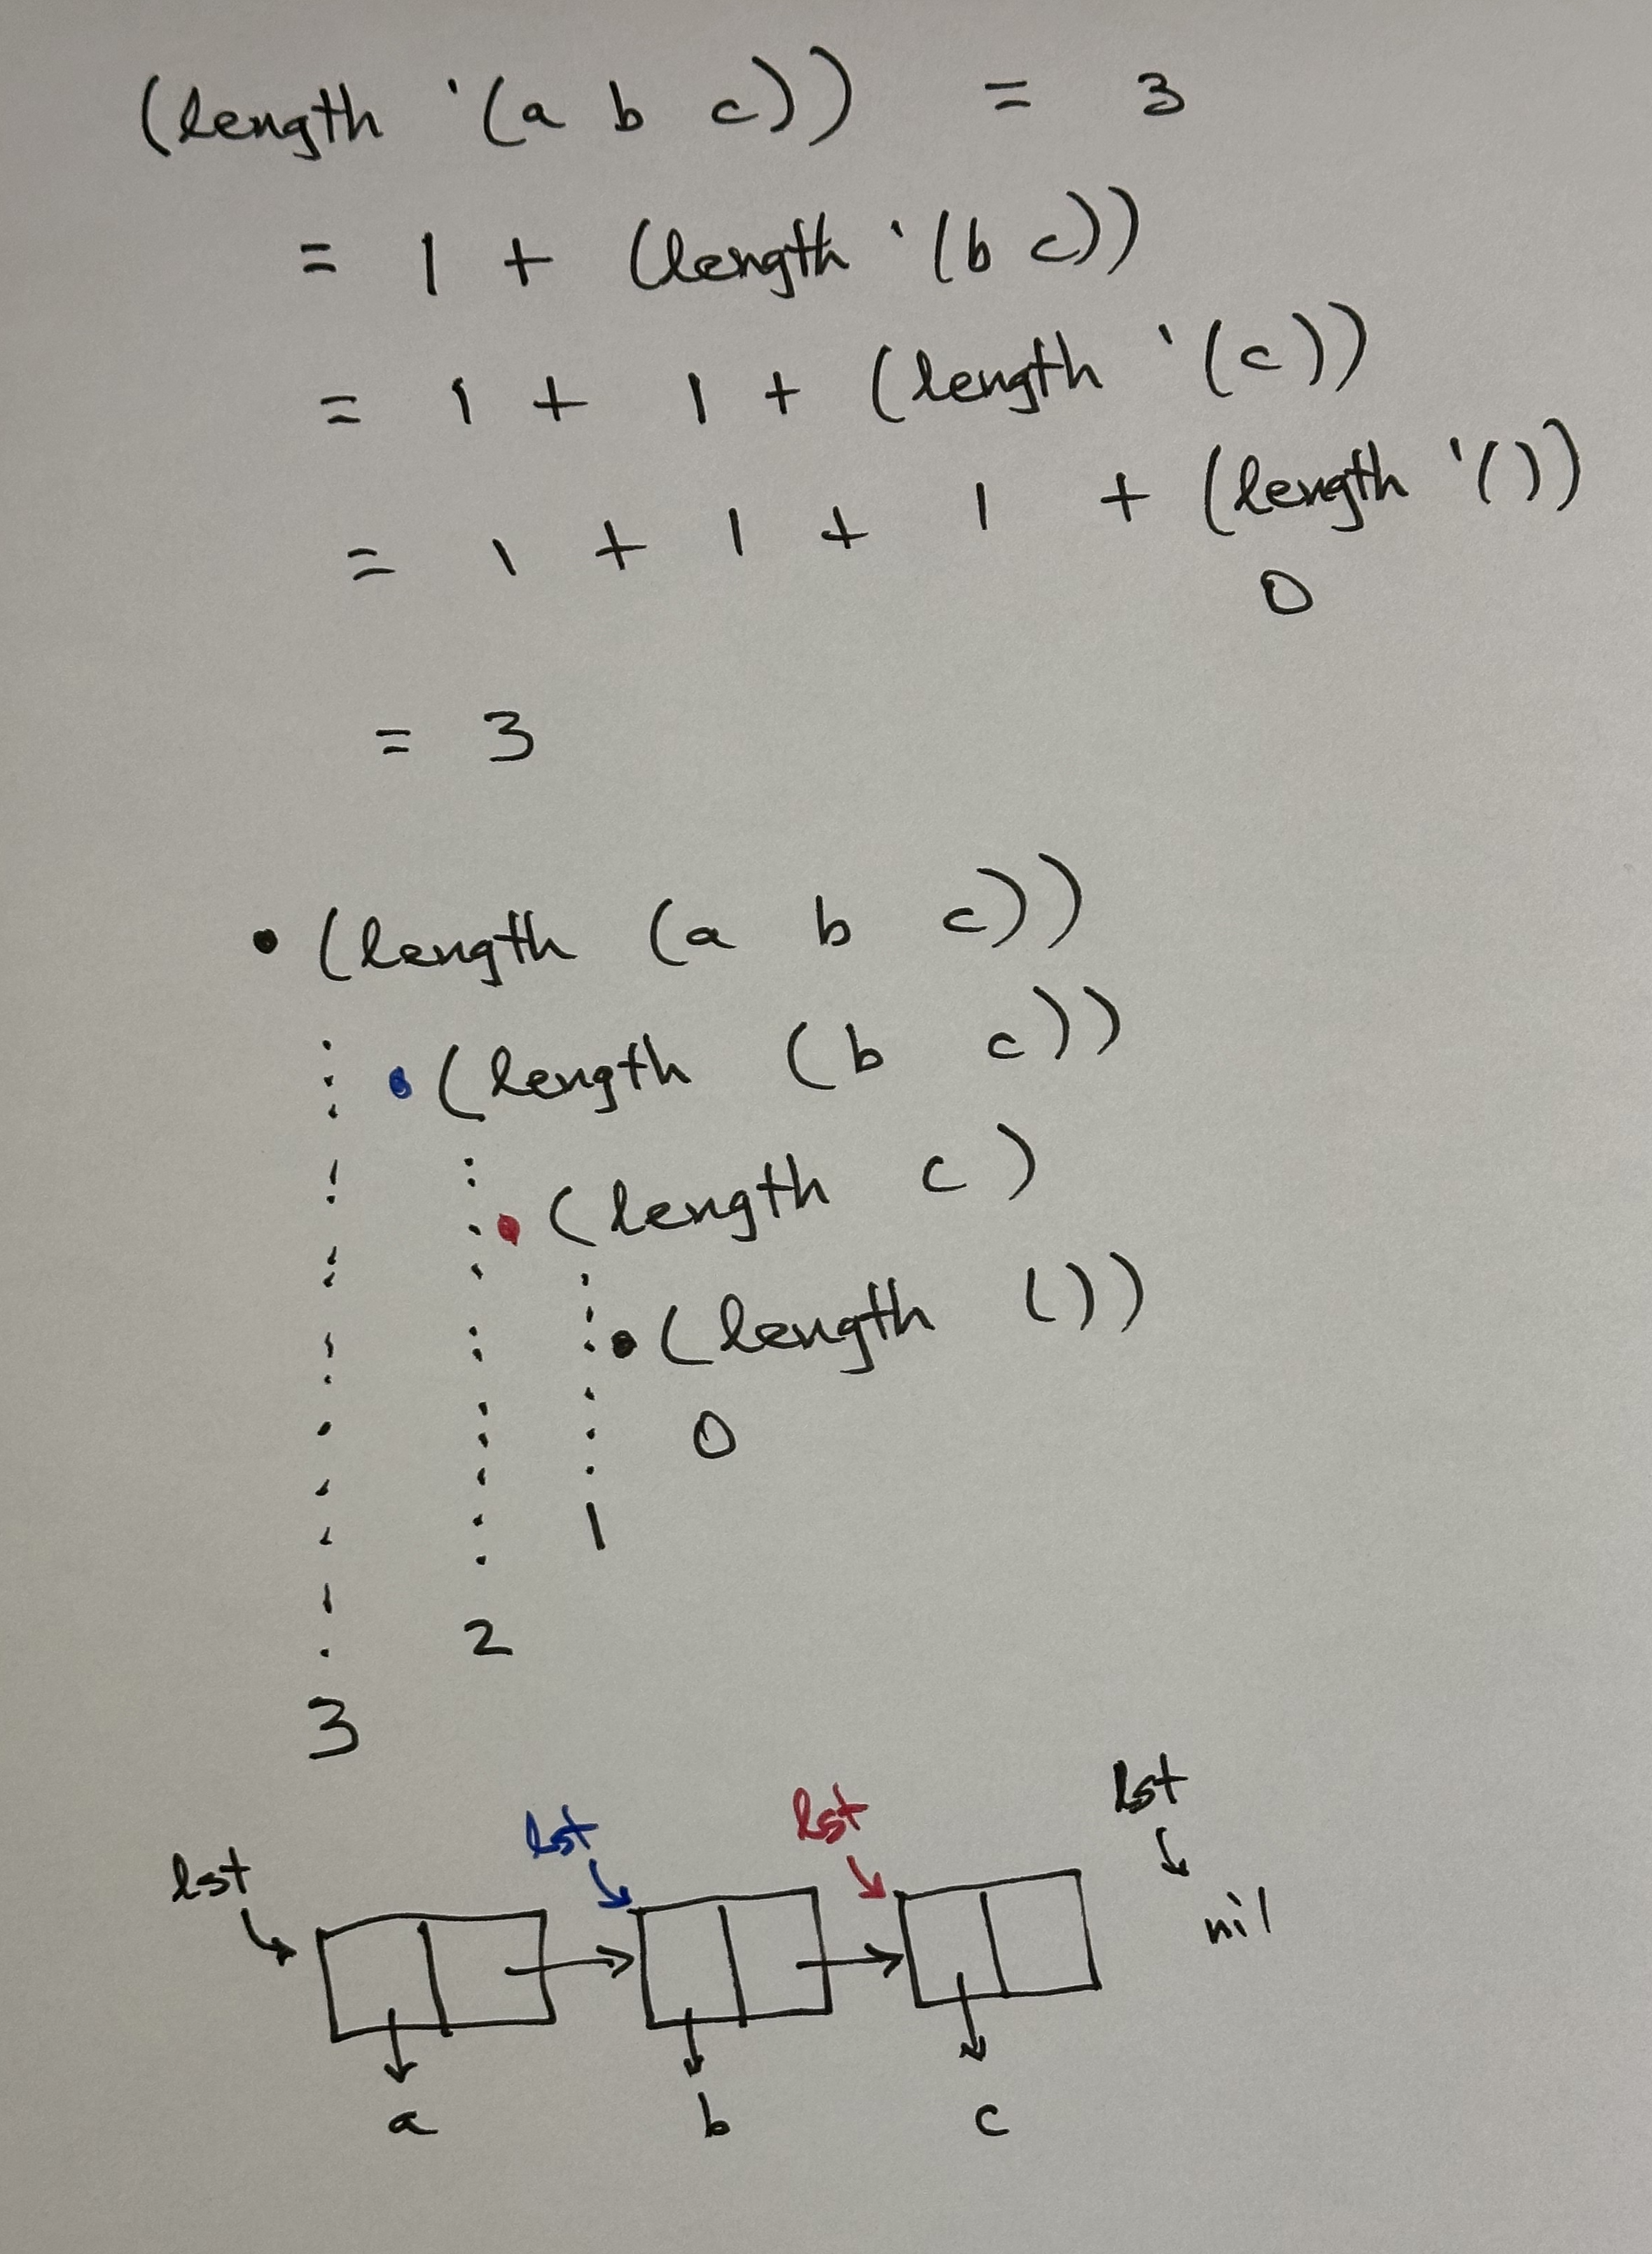 (length '(a b c)) = 3
= 1 + (length '(b c))
= 1 + 1 + (length '(c))
= 1 + 1 + 1 + (length '())
0
= 3
• (length (a b c))
• (length (b c))
• (length c)
• (length ())
0
1
2
3
lst lst lst lst
nil
a b c